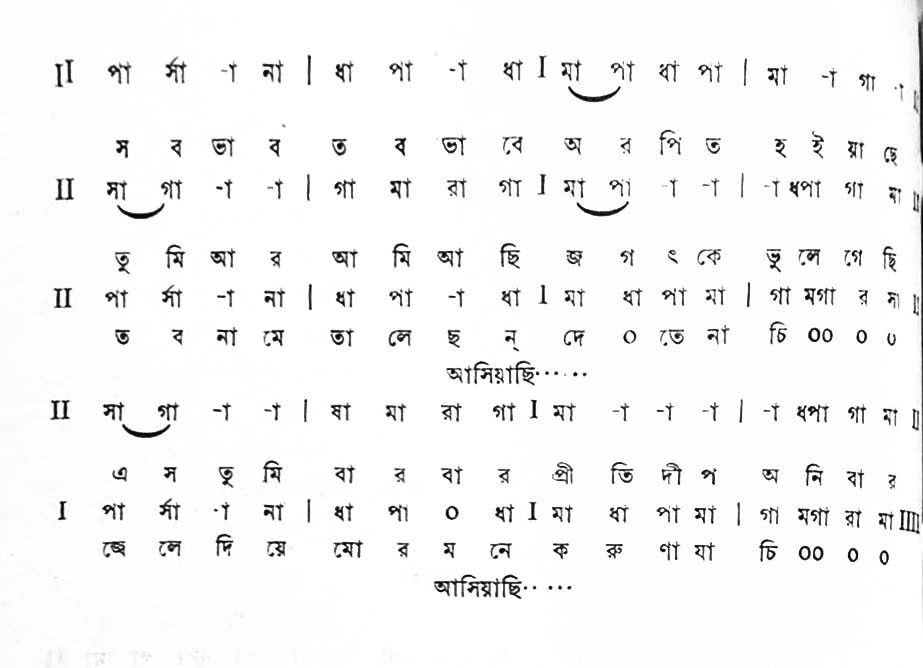 II পা র্সা -া না | ধা পা -া ধা I মা পা ধা পা | মা -া গা -া I
স ব ভা ব ত ব ভা বে অ র পি ত হ ই য়া ছে
II সা গা -া -া | গা মা রা গা I মা পা -া -া | -া ধপা গা মা II
তু মি আ র আ মি আ ছি জ গ ৎ কে ভু লে গে ছি
II পা র্সা -া না | ধা পা -া ধা I মা ধা পা মা | গা মগা র সা II
ত ব না মে তা লে ছ ন্ দে ০ তে না চি ০০ ০ ০
আসিয়াছি······
II সা গা -া -া | ষা মা রা গা I মা -া -া -া | -া ধপা গা মা II
এ স তু মি বা র বা র প্রী তি দী প অ নি বা র
I পা র্সা -া না | ধা পা ০ ধা I মা ধা পা মা | গা মগা রা মা IIII
জ্বে লে দি য়ে মো র ম নে ক রু ণা যা চি ০০ ০ ০
আসিয়াছি·····